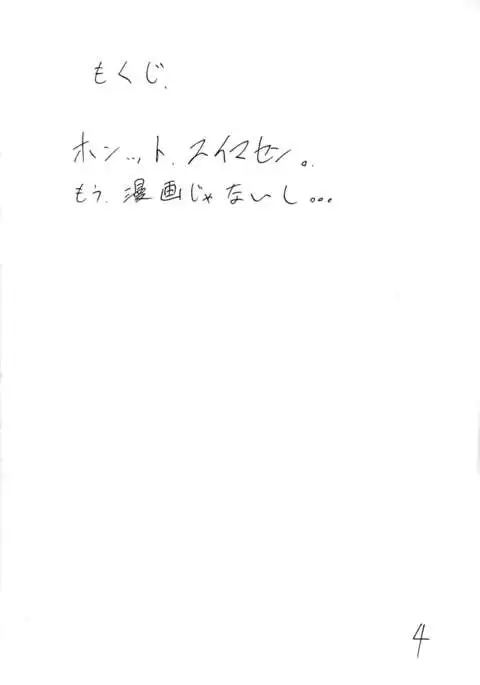 もくじ.
ホンット.スイマセン。
もう.漫画じゃないし...
4